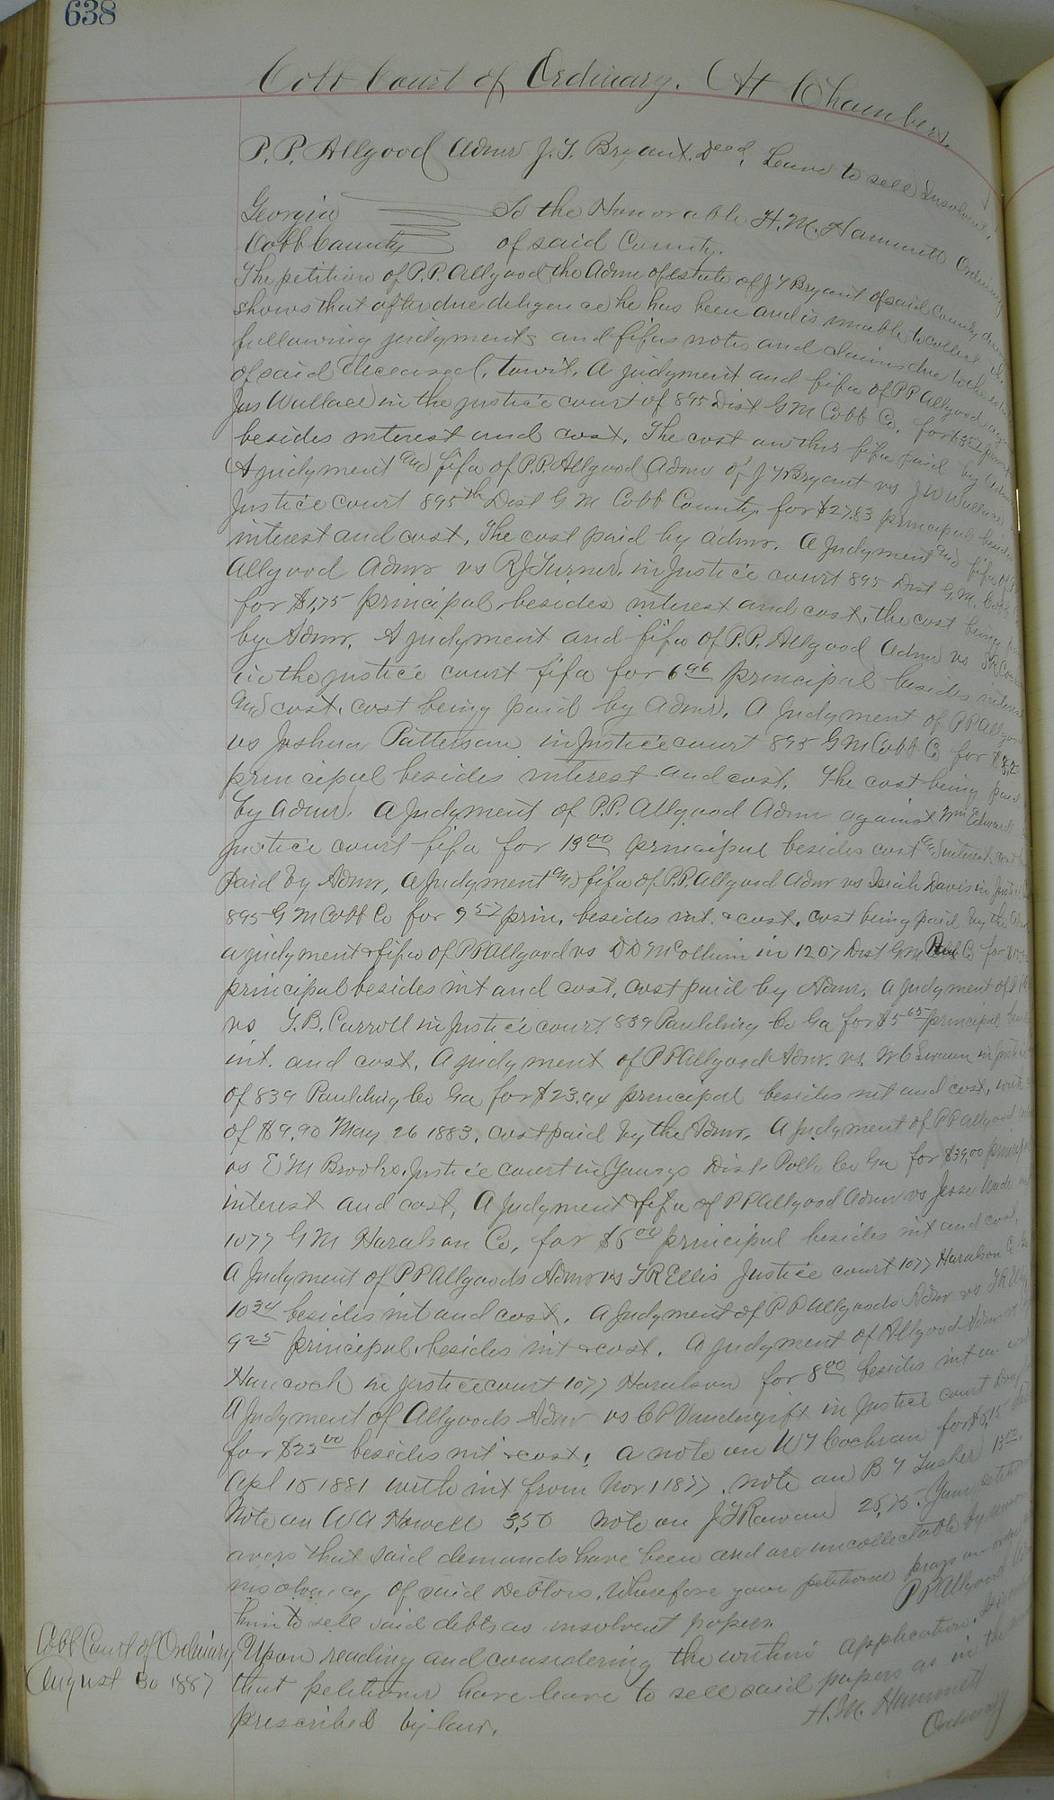 638
Cobb Court of Ordinary. At Chambers.
P.P. Allgood Admr J.Y. Bryant Decd. Leave to sell Insolvent
Georgia To the Honorable H.M. Hammett Ordinary
Cobb County of said County.
The petition of P.P. Allgood the Admr of estate of J Y Bryant of said County
shows that after due deligence he has been and is unable to collect the
following judgments and fifas notes and claims due to the estate
of said deceased, towit. A judgment and fifa of PP Allgood
Jas Wallace in the justice court of 895 Dist G M Cobb Co. for
besides interest and cost. The cost on this fifa paid by Admr
A judgment and fifa of P.P. Allgood Admr of J Y Bryant vs J W Wallace
Justice court 895th Dist G M Cobb County for $27.83 principal besides
interest and cost, The cost paid by admr. A Judgment and fifa of
Allgood Admr vs R J Turner, in Justice court 895 Dist G.M. Cobb
for $1,75 principal besides interest and cost, the cost being
by Admr. A judgment and fifa of P.P. Allgood Admr vs
in the justice court fifa for 6 96 principal besides interest
and cost, cost being paid by Admr, A Judgment of PP Allgood
vs Joshua Patterson in Justice court 895 G M Cobb Co for
principal besides interest and cost. The cost being paid
by Admr. A Judgment of P.P. Allgood Admr against Wm Edwards
justice court fifa for 13 00 principal besides cost and interest
paid by Admr, A Judgment and fifa of P.P. Allgood Admr vs Isiah Davis in Justice
895 G M Cobb Co for 9 57 prin. besides int. & cost, cost being paid by the
a judgment & fifa of P P Allgood vs D D McCollum in 1207 Dist G M Co for
principal besides int and cost, cost paid by Admr, A Judgment of
vs T.B. Carroll in Justice court 839 Paulding Co Ga for $5 65 principal
int. and cost. A judgment of P P Allgood Admr. vs. in Justice
of 839 Paulding Co Ga for $23.94 principal besides int and cost, with
of $9.90 May 26 1883, cost paid by the Admr, A Judgment of P P Allgood
vs E M Brooks, Justice court in Youngs Dist Polk Co Ga for $39,00 principal
interest and cost, A Judgment & fifa of P P Allgood Admr vs Jesse Wade
1077 G M Haralson Co, for $6 00 principal besides int and cost,
A Judgment of P P Allgoods Admr vs T R Ellis Justice court 1077 Haralson Co
10 34 besides int and cost. A Judgment of P P Allgoods Admr vs
9 25 principal, besides int & cost. A Judgment of Allgood Admr
Hancock in justice court 1077 Haralson for 8 00 besides int
A Judgment of Allgoods Admr vs C P Vandergift in Justice court
for $22 00 besides int & cost, A note on W Y Cochran for
Apl 15 1881 with int from Nov 1 1877. note on B Y
Note on W A Howell 3,50 Note on J Y Rowan 25,75. Your petitioner
avers that said demands have been and are uncollectable by
insolvency of said Debtors. Wherefore your petitioner prays an order
him to sell said debts as insolvent papers
P P Allgood
Cobb Court of Ordinary
August 30 1887
Upon reading and considering the within application.
that petitioner have leave to sell said papers as in the
prescribed by law.
H.M. Hammett
Ordinary